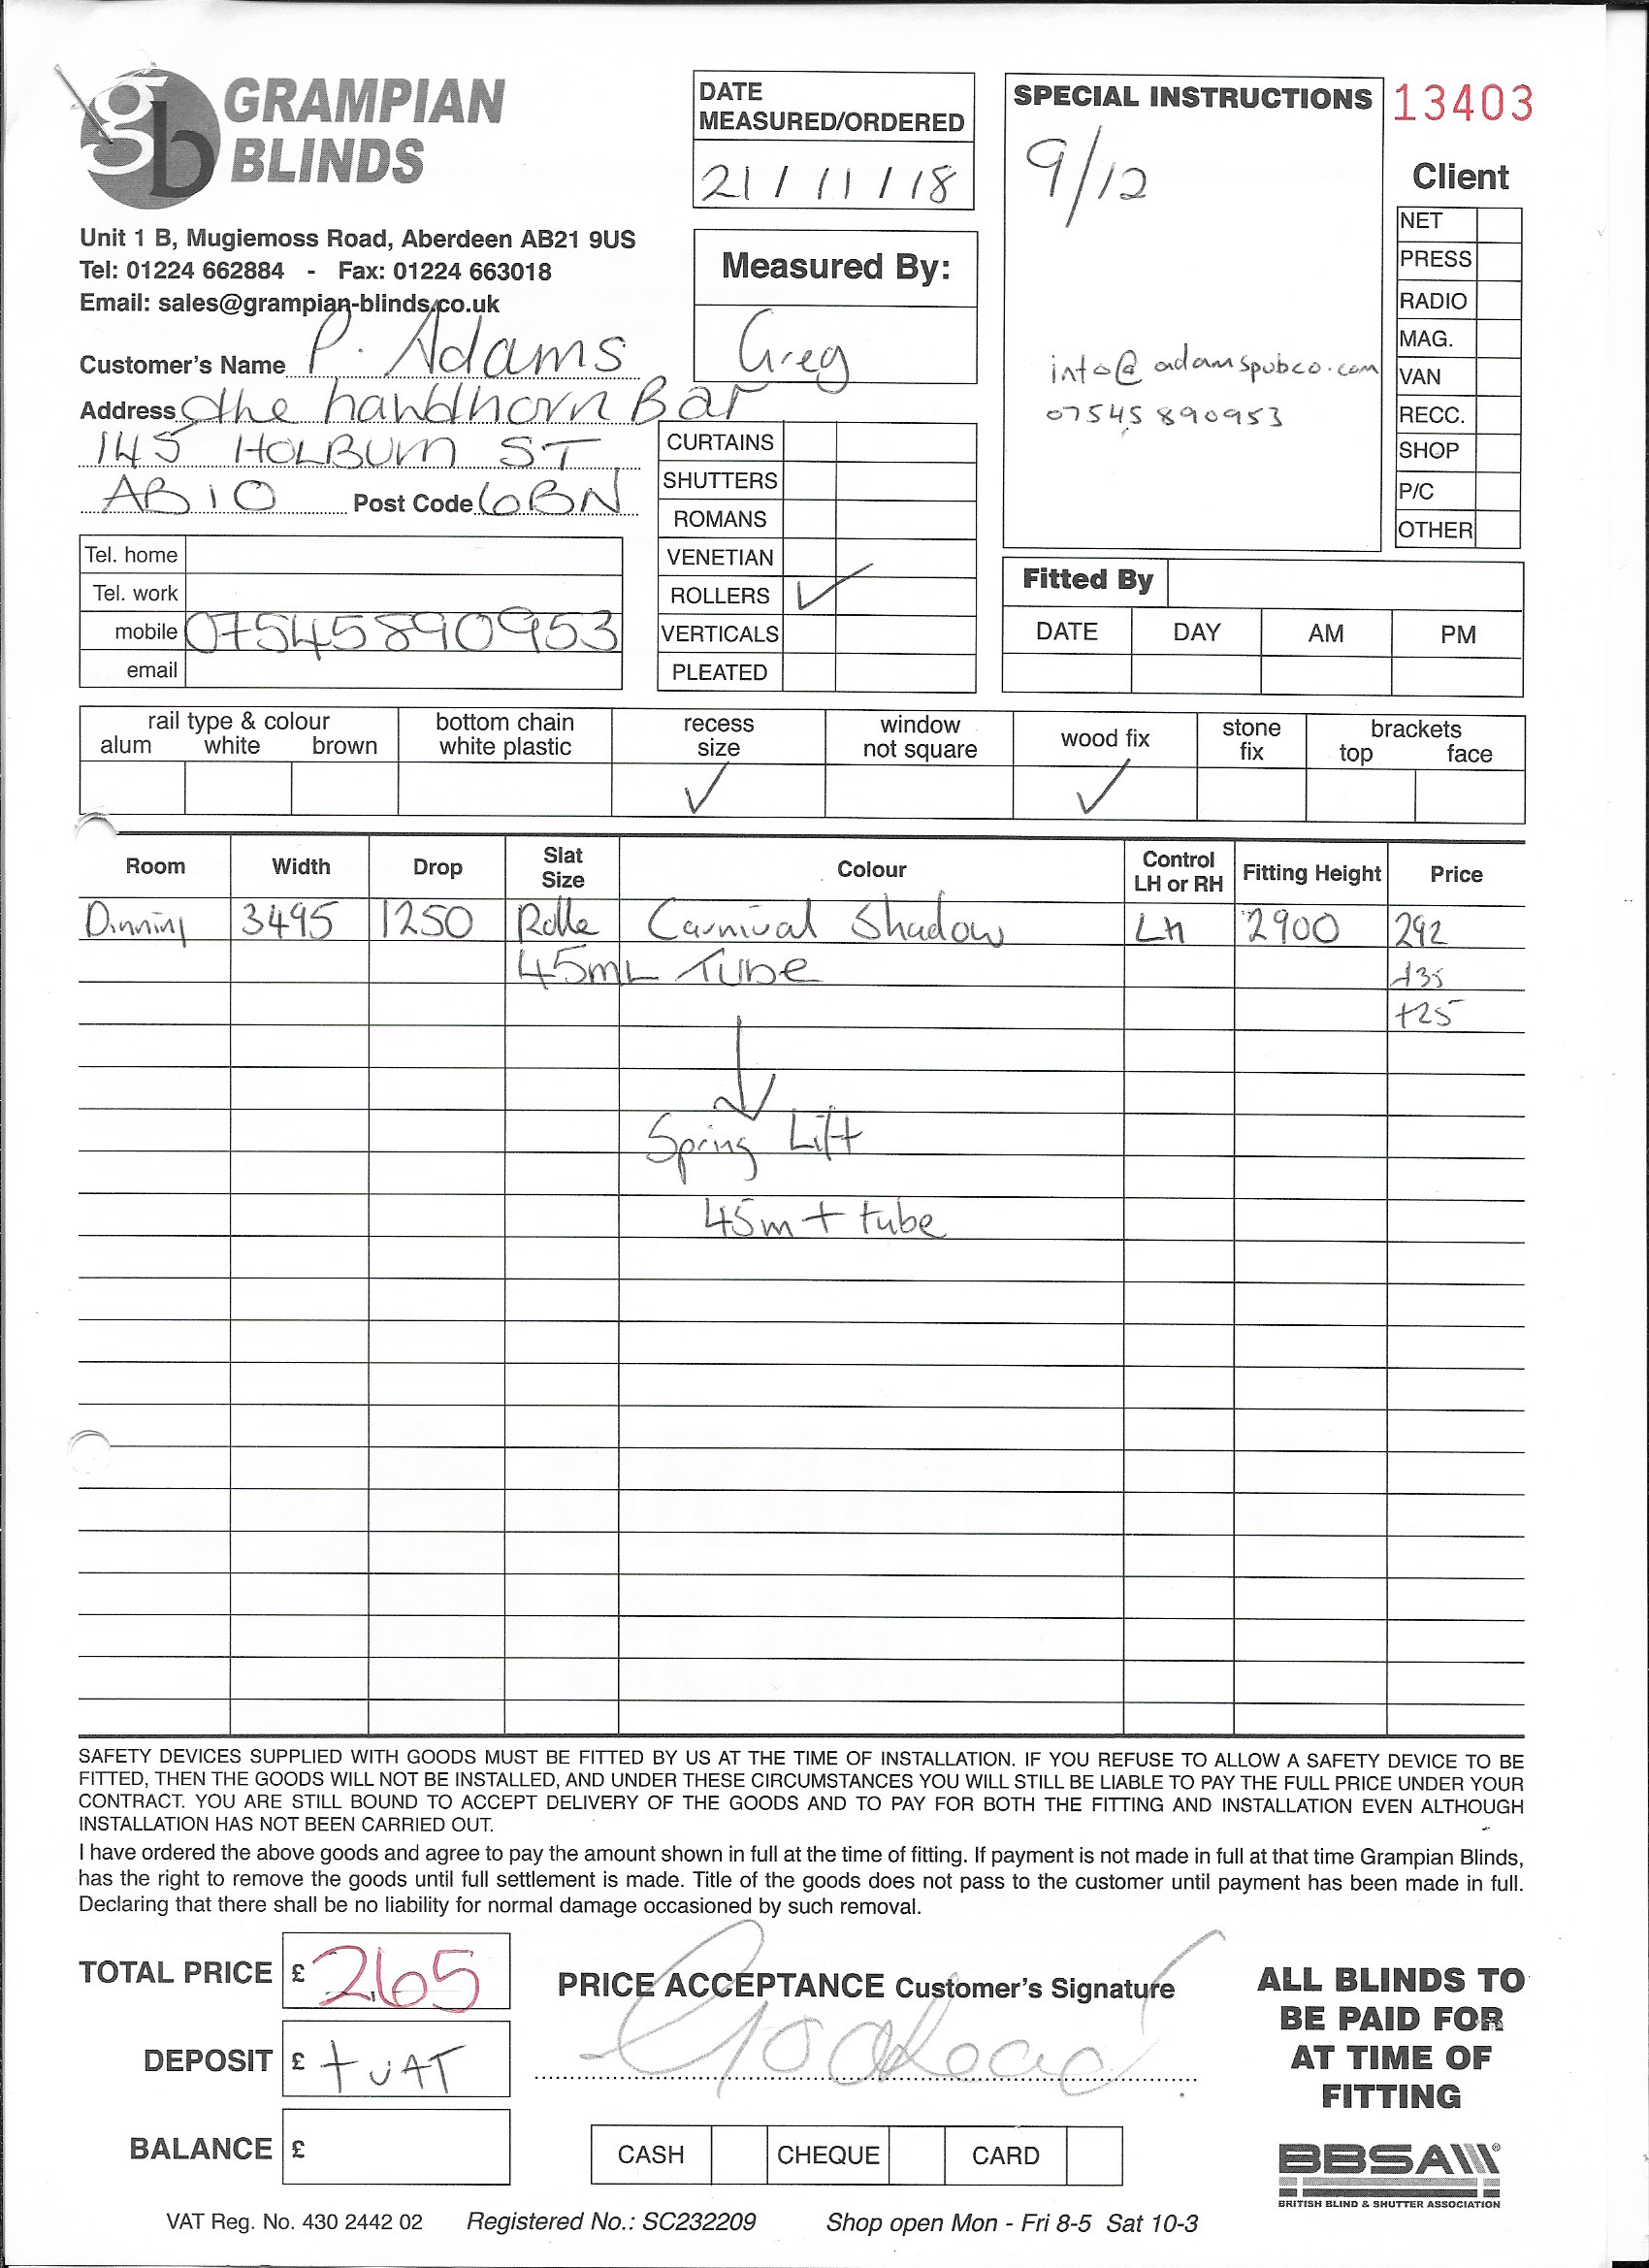 gb GRAMPIAN
BLINDS
Unit 1 B, Mugiemoss Road, Aberdeen AB21 9US
Tel: 01224 662884 - Fax: 01224 663018
Email: sales@grampian-blinds.co.uk
Customer's Name P. Adams
Address The hawthorn Bar
145 HOLBURN ST
AB10 Post Code 6BN
Tel. home
Tel. work
mobile 07545890953
email
DATE
MEASURED/ORDERED
21 / 11 / 18
Measured By:
Greg
CURTAINS
SHUTTERS
ROMANS
VENETIAN
ROLLERS ✓
VERTICALS
PLEATED
SPECIAL INSTRUCTIONS
9/12
info@adamspubco.com
07545 890953
13403
Client
NET
PRESS
RADIO
MAG.
VAN
RECC.
SHOP
P/C
OTHER
Fitted By
DATE DAY AM PM
rail type & colour
alum white brown
bottom chain
white plastic
recess
size
✓
window
not square
wood fix
✓
stone
fix
brackets
top face
Room Width Drop Slat Size Colour Control LH or RH Fitting Height Price
Dinning 3495 1250 Rolle Carnival Shadow LH 2900 292
45mL Tube +35
+25
Spring Lift
45m + tube
SAFETY DEVICES SUPPLIED WITH GOODS MUST BE FITTED BY US AT THE TIME OF INSTALLATION. IF YOU REFUSE TO ALLOW A SAFETY DEVICE TO BE
FITTED, THEN THE GOODS WILL NOT BE INSTALLED, AND UNDER THESE CIRCUMSTANCES YOU WILL STILL BE LIABLE TO PAY THE FULL PRICE UNDER YOUR
CONTRACT. YOU ARE STILL BOUND TO ACCEPT DELIVERY OF THE GOODS AND TO PAY FOR BOTH THE FITTING AND INSTALLATION EVEN ALTHOUGH
INSTALLATION HAS NOT BEEN CARRIED OUT.
I have ordered the above goods and agree to pay the amount shown in full at the time of fitting. If payment is not made in full at that time Grampian Blinds,
has the right to remove the goods until full settlement is made. Title of the goods does not pass to the customer until payment has been made in full.
Declaring that there shall be no liability for normal damage occasioned by such removal.
TOTAL PRICE £ 265
DEPOSIT £ + VAT
BALANCE £
PRICE ACCEPTANCE Customer's Signature
CASH CHEQUE CARD
ALL BLINDS TO
BE PAID FOR
AT TIME OF
FITTING
BBSA
BRITISH BLIND & SHUTTER ASSOCIATION
VAT Reg. No. 430 2442 02 Registered No.: SC232209 Shop open Mon - Fri 8-5 Sat 10-3